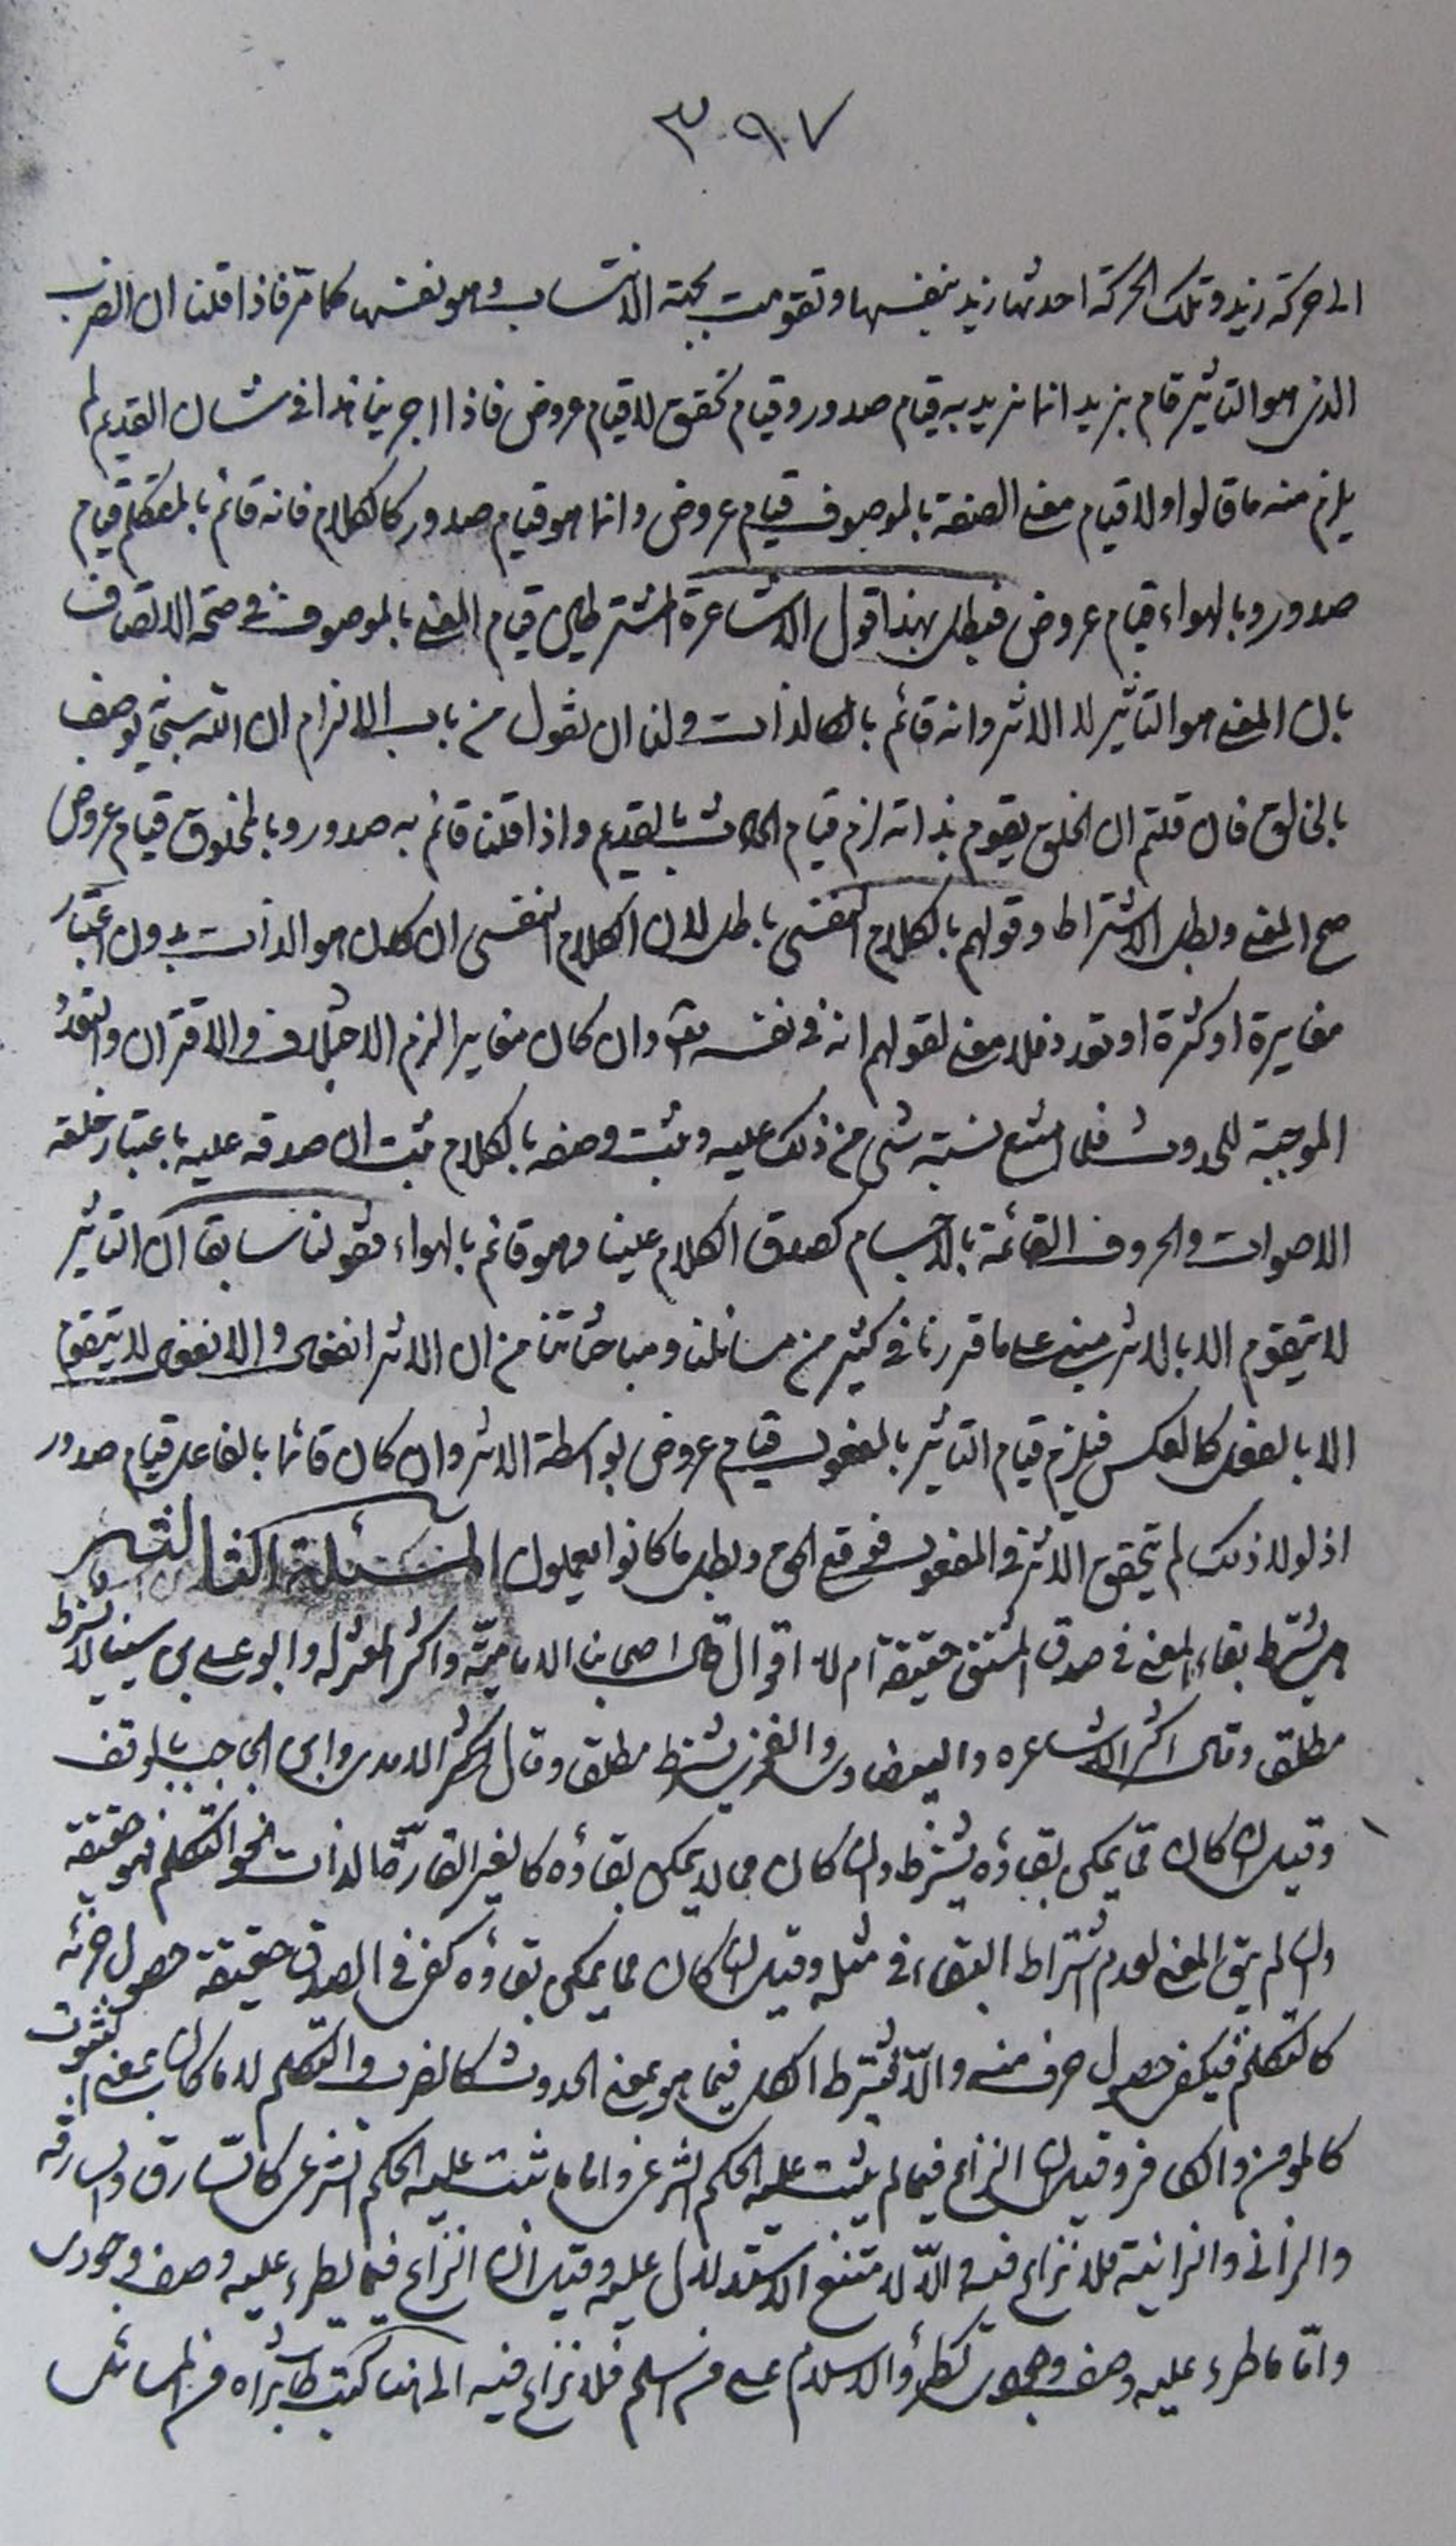 ٣٩٧
الى حركة زيد وتلك الحركة احدثها زيد بنفسها وتقومت بجهة الانتساب وهو نفسها كما مر فاذا قلنا ان الضرب
الذي هو التأثير قام بزيد انما نريد به قيام صدور وقيام تحقق لا قيام عروض فاذا اجرينا هذا في شان القديم لم
يلزم منه ما قالوا ولا قيام معنى الصفة بالموصوف قيام عروض وانما هو قيام صدور كالكلام فانه قائم بالمتكلم قيام
صدور وبالهواء قيام عروض فبطل بهذا قول الاشاعرة المشترطين قيام المعنى بالموصوف في صحة الاتصاف
بان المعنى هو التأثير لا الاثر وانه قائم بالذات ولنا ان نقول من باب الالزام ان الله سبحانه يوصف
بالخالق فان قلتم ان الخلق يقوم بذاته لزم قيام الحادث بالقديم واذا قلنا قائم به صدور وبالمخلوق قيام عروض
صح المعنى وبطل الاشتراط وقولهم بالكلام النفسي باطل لان الكلام النفسي ان كان هو الذات بدون اعتبار
مغايرة او كثرة او تعدد فلا معنى لقولهم انه في نفسه وان كان مغايرا لزم الاختلاف والاقتران والتعدد
الموجبة للحدوث فلما امتنع نسبة شئ من ذلك عليه وثبت وصفه بالكلام ثبت ان صدقه عليه باعتبار خلقه
الاصوات والحروف القائمة بالاجسام كصدق الكلام علينا وهو قائم بالهواء فقولنا سابقا ان التأثير
لا يتقوم الا بالاثر مبني على ما قررنا في كثير من مسائلنا ومباحثاتنا من ان الاثر انفعال والانفعال لا يتقوم
الا بالفعل كالعكس فيلزم قيام التأثير بالمفعول قيام عروض بواسطة الاثر وان كان قائما بالفاعل قيام صدور
اذ لولا ذلك لم يتحقق الاثر في المفعول فوقع الحق وبطل ما كانوا يعملون المسئلة الثالثة
هل يشترط بقاء المعنى في صدق المشتق حقيقة ام لا اقوال قال اصحابنا الامامية واكثر المعتزلة وابو علي بن سينا لا يشترط
مطلق وقال اكثر الاشاعره والبيضاوي والفخر يشترط مطلق وقال الآمدي وابن الحاجب بالوقف
وقيل ان كان مما يمكن بقاؤه يشترط وان كان مما لا يمكن بقاؤه كالغير القارة الذات نحو التكلم فهو حقيقة
وان لم يبق المعنى لعدم اشتراط البقاء في مثله وقيل ان كان مما يمكن بقاؤه كفى في الصدق حقيقة حصول جزئه
كالتكلم فيكفي حصول حرف منه والّا فيشترط الكل فيما هو بمعنى الحدوث كالضرب والتكلم لا ما كان بمعنى الثبوت
كالمؤمن والكافر وقيل ان النزاع فيما لم يثبت عليه الحكم الشرعي واما ما ثبت عليه الحكم الشرعي كالسارق والسارقة
والزاني والزانية فلا نزاع فيه والّا لامتنع الاستدلال عليه وقيل ان النزاع فيما لم يطرء عليه وصف وجودي
وامّا ما طرء عليه وصف وجودي كطرؤ الاسلام على من اسلم فلا نزاع فيه الى هنا كتب من المسائل